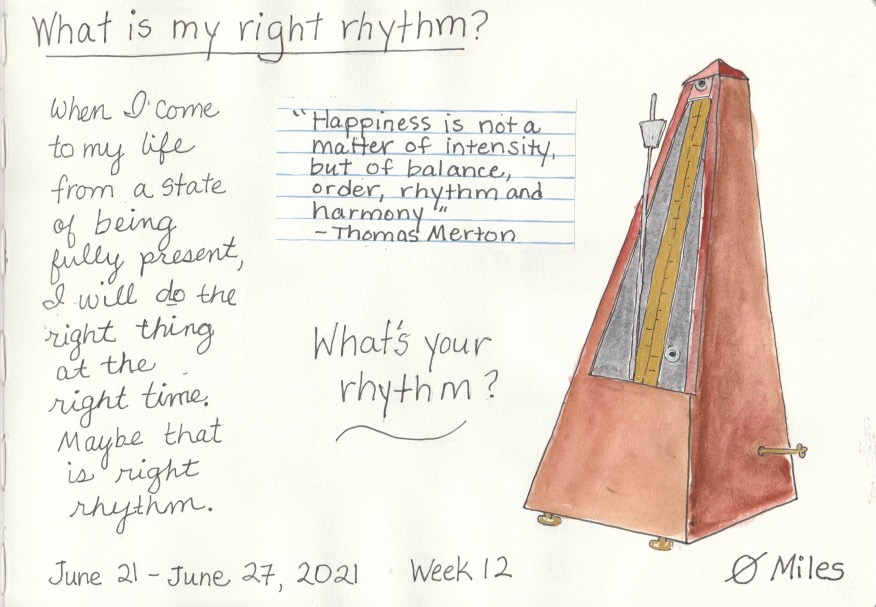 What is my right rhythm?
When I come
to my life
from a state
of being
fully present,
I will do the
right thing
at the
right time.
Maybe that
is right
rhythm.
"Happiness is not a
matter of intensity,
but of balance,
order, rhythm and
harmony"
- Thomas Merton
What's your
rhythm?
June 21 - June 27, 2021 Week 12 Ø Miles